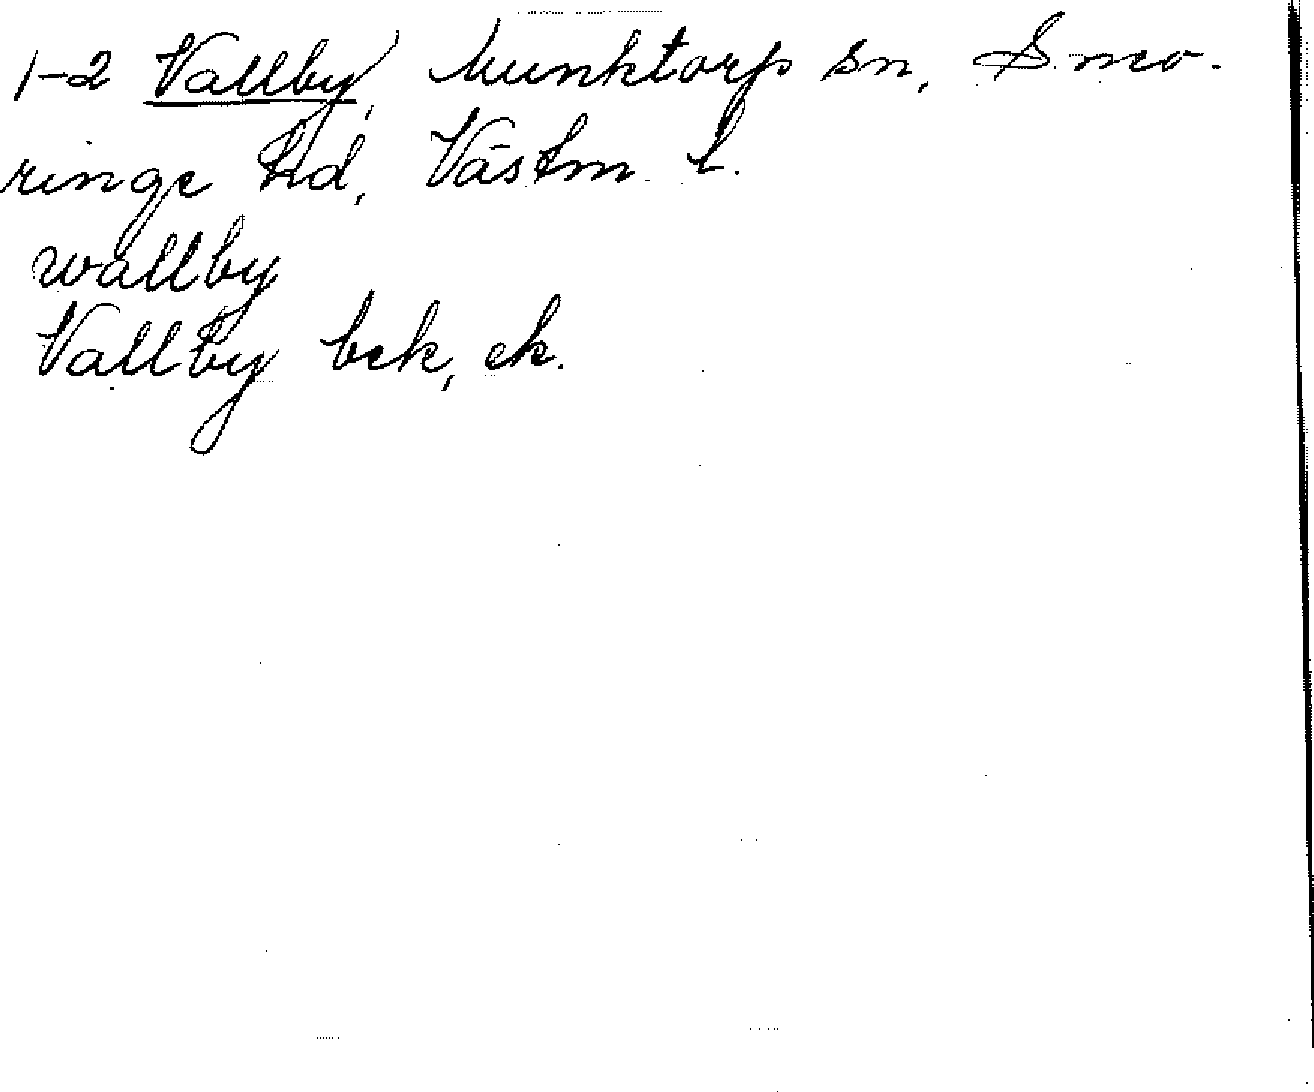 1-2 Vallby, Munktorp sn, Snev-
ringe hd, Västm. l.
wallby
Vallby bek, ek.